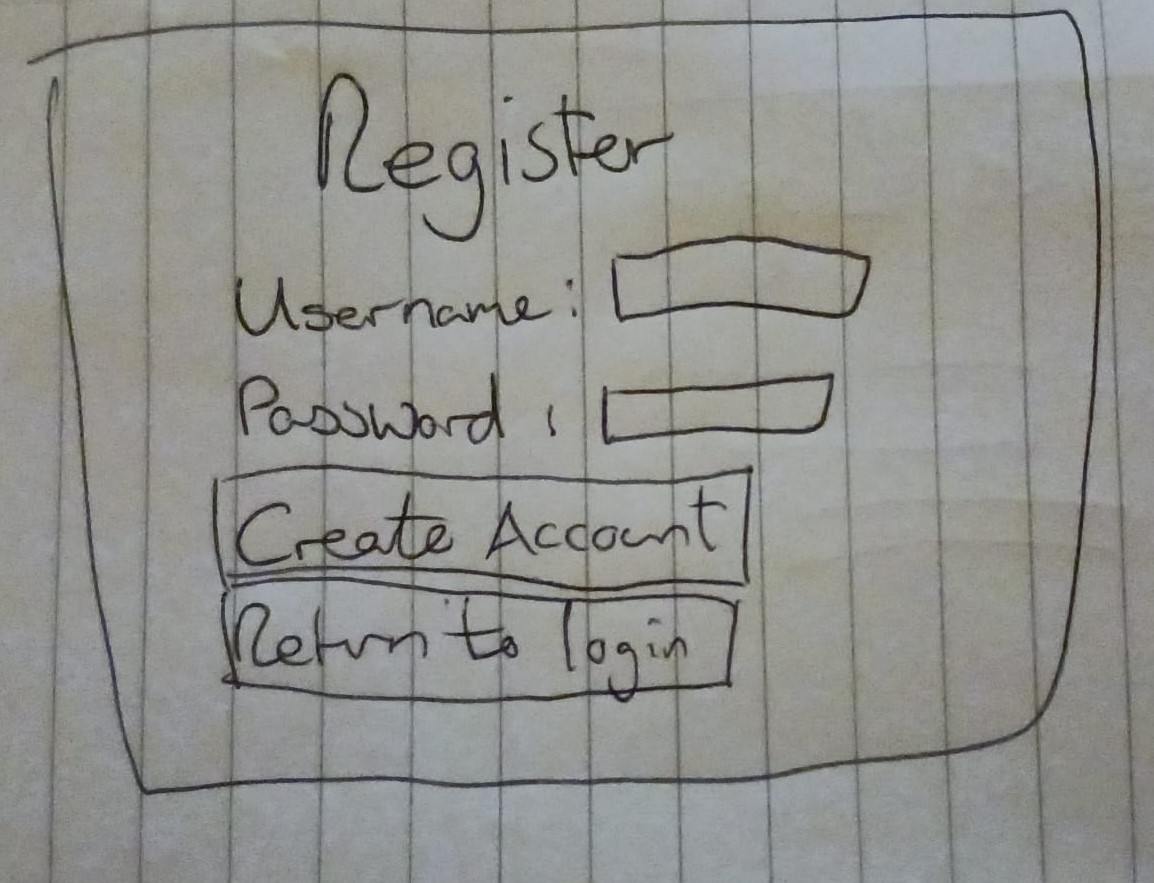 Register
Username:
Password:
Create Account
Return to login